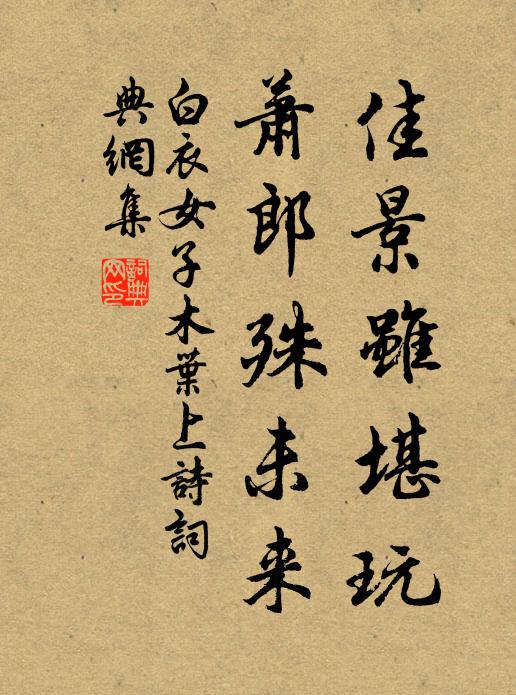 佳景雖堪玩
蕭郎殊未来
白衣女子木葉上詩詞
典網集
詞典网印